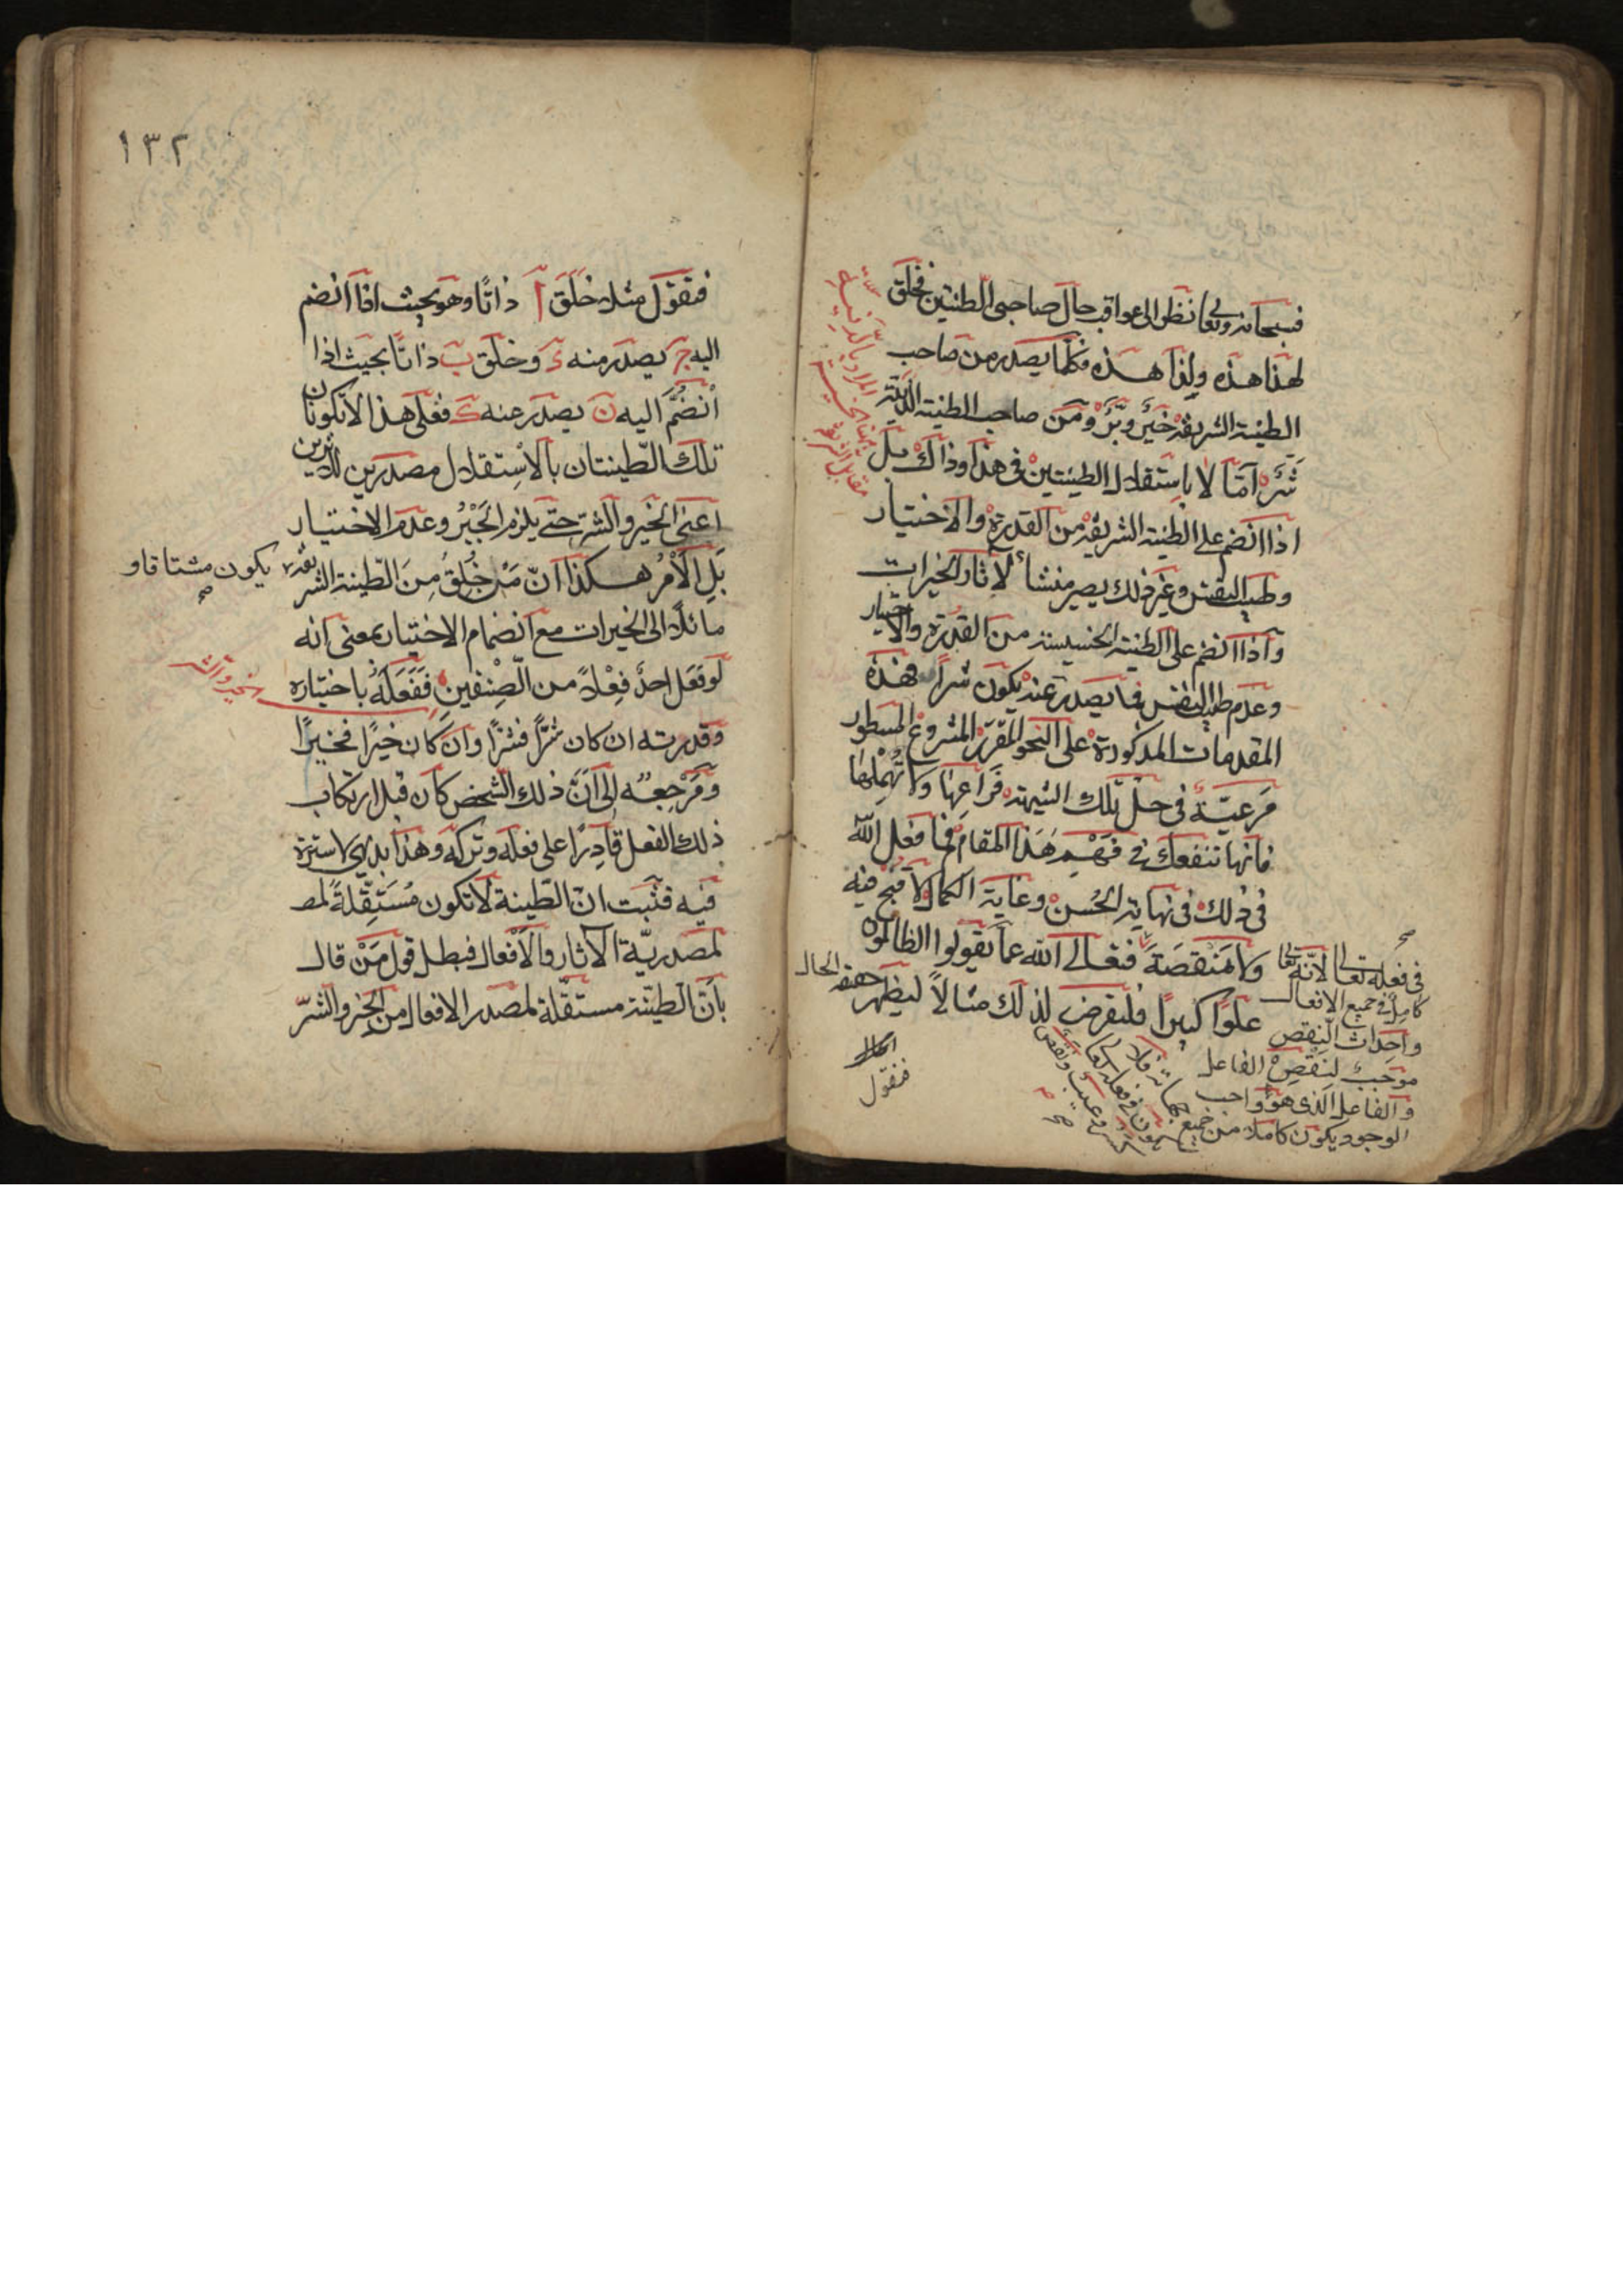 فسبحانه وتعا نظر الى عواقب حال صاحبى الطينتين فخلق
لهذا هذه ولذا هذه فكلما يصدر من صاحب
الطينة الشريفة خَيْرٌ وبَّرٌ ومن صاحب الطينة الدنيّة
شَرٌّ امّا لا باستقلال الطينتين فى هذا وذاك بل
اذا انضم على الطينة الشريفة من القدرة والاختيار
وطيب النفس وغير ذلك يصير منشأ لآثار الخيرات
وآذا انضم على الطينة الخسيسة من القدرة والاختيار
وعدم طيب النفس فما يصدر عنه يكون شرا فهذه
المقدمات المذكورة على النحو المقرر المشروع المسطور
مَرعيّة فى حل تلك الشبهة فَرَاعِها ولا تُهْمِلها
فانها تنفعك فى فَهْمِ هَذا المقام فما فعل الله
فى ذلك فى نهاية الحُسن وغاية الكمال لا قبح فيه
ولا مَنْقصَةَ فتعالى الله عما يقولوا الظالمون
علوًا كبيرا فلنفرض لذلك مثالاً ليظهر حقيقة الحال
المراد بالدنية
هنا الخسيسة
مقابل الشريفة
فى فعله تعالى لانّه تعا
كامل فى جميع الافعال
واحداث النقص
موجب لنقص الفاعل
والفاعل الذى هو واجب
الوجود يكون كاملا من جميع
جهاته فلا
يكون فى فعله تعا
عيب ونقص
صح
فنقول
١٣٢
فنقول مثلا خَلَقَ آ ذاتًا وهو بحيث اذا انضم
اليه ج يصدر منه ء وخلق ب ذاتًا بحيث اذا
انْضَمَّ اليه ن يصدر عنه ك فعلى هذا لا تكونان
تلك الطّينتان بالاسْتقلال مصدرين للاثرين
اعنى الخير والشرّ حتى يلزم الجَبْرُ وعدم الاختيار
بَلِ الاَمْرُ هكذا انّ مَنْ خُلِقَ مِنَ الطّينة الشريفة يكون مشتاقا و
صح
مائلًا الى الخيرات مع انضمام الاختيار بمعنى انه
لو فَعَل احدٌ فِعْلاً من الصِّنْفين فَفَعَلَهُ باختياره
الخير والشر
وقدرته ان كان شرًّا فشرًّا وان كان خيرًا فخيرًا
ومَرْجِعُه الى انَّ ذلك الشخص كان قبل ارتكاب
ذلك الفعل قادرًا على فعله وتركه وهذا بديهى لا سترة
فيه فثبت انّ الطّينة لا تكون مُسْتَقِلّةً لمص
لمصدريّة الآثار والاَفْعال فبطل قول مَنْ قال
بانّ الطّينة مستقلّة لمصدر الافعال من الخير والشرّ